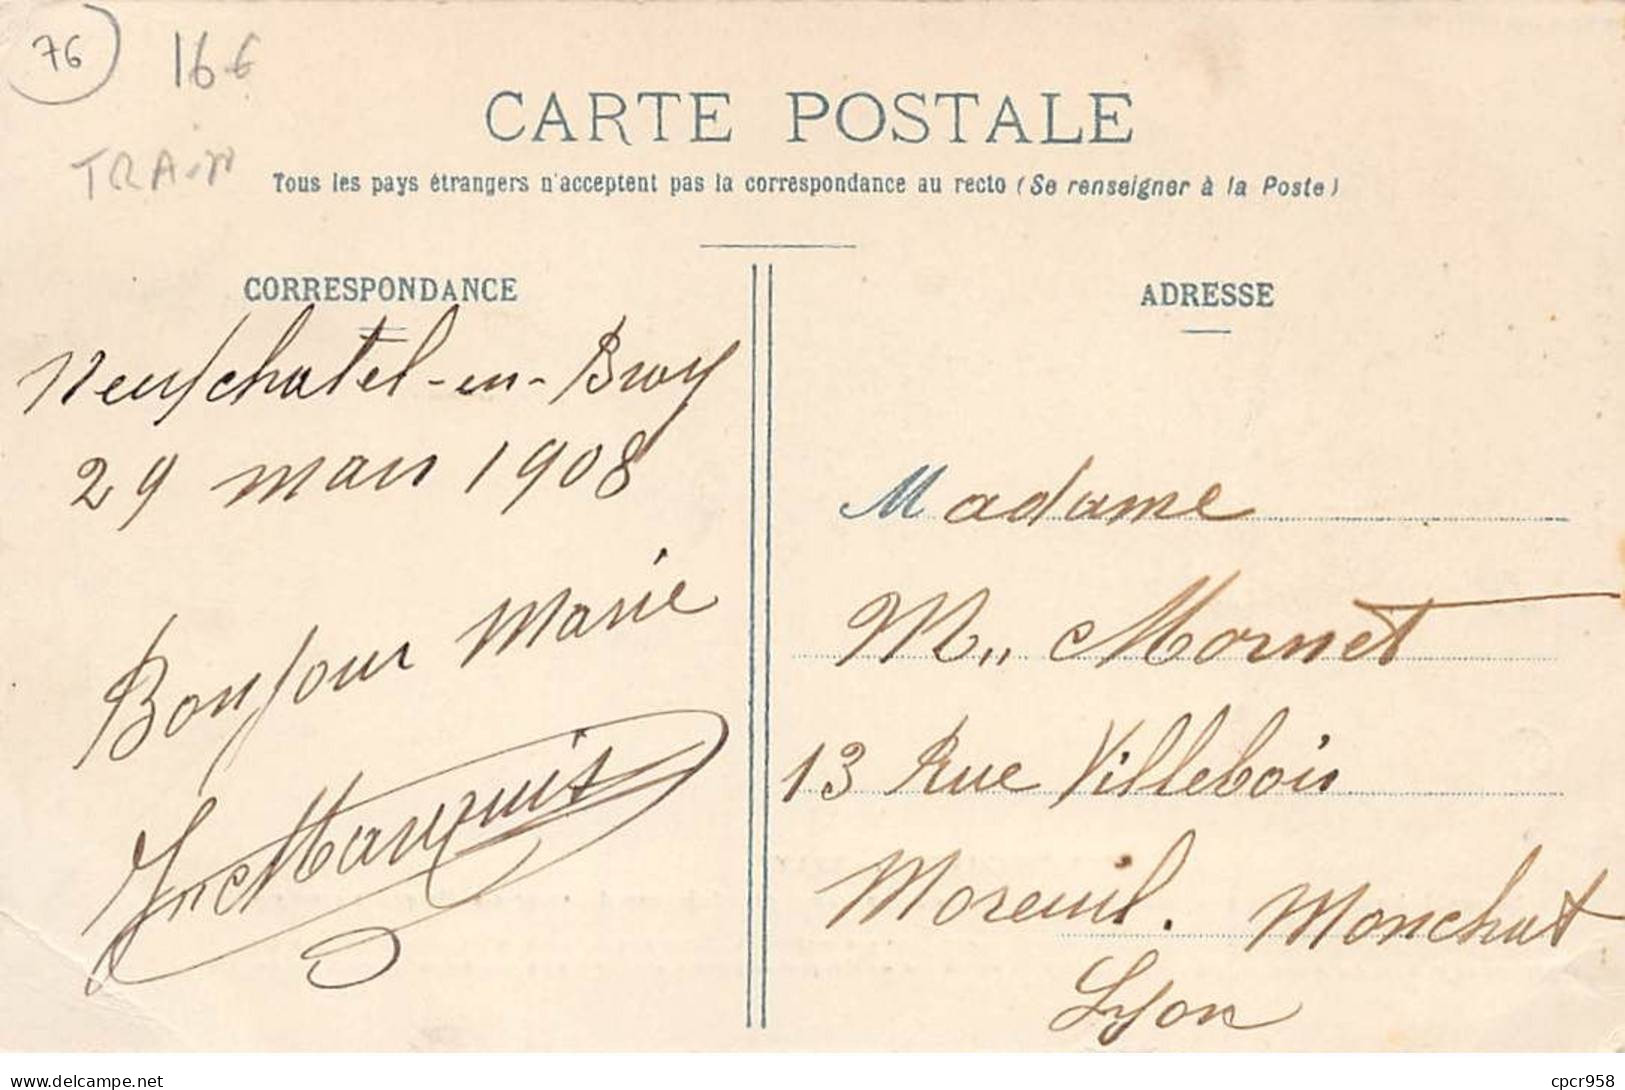 76
16 €
TRAIN
CARTE POSTALE
Tous les pays étrangers n'acceptent pas la correspondance au recto (Se renseigner à la Poste)
CORRESPONDANCE
ADRESSE
Neufchatel-en-Bray
29 mars 1908
Bonjour Marie
Marquis
Madame
M,, Mornet
13 Rue Villebois
Mareuil. Monchat
Lyon
delcampe.net
cpcr958